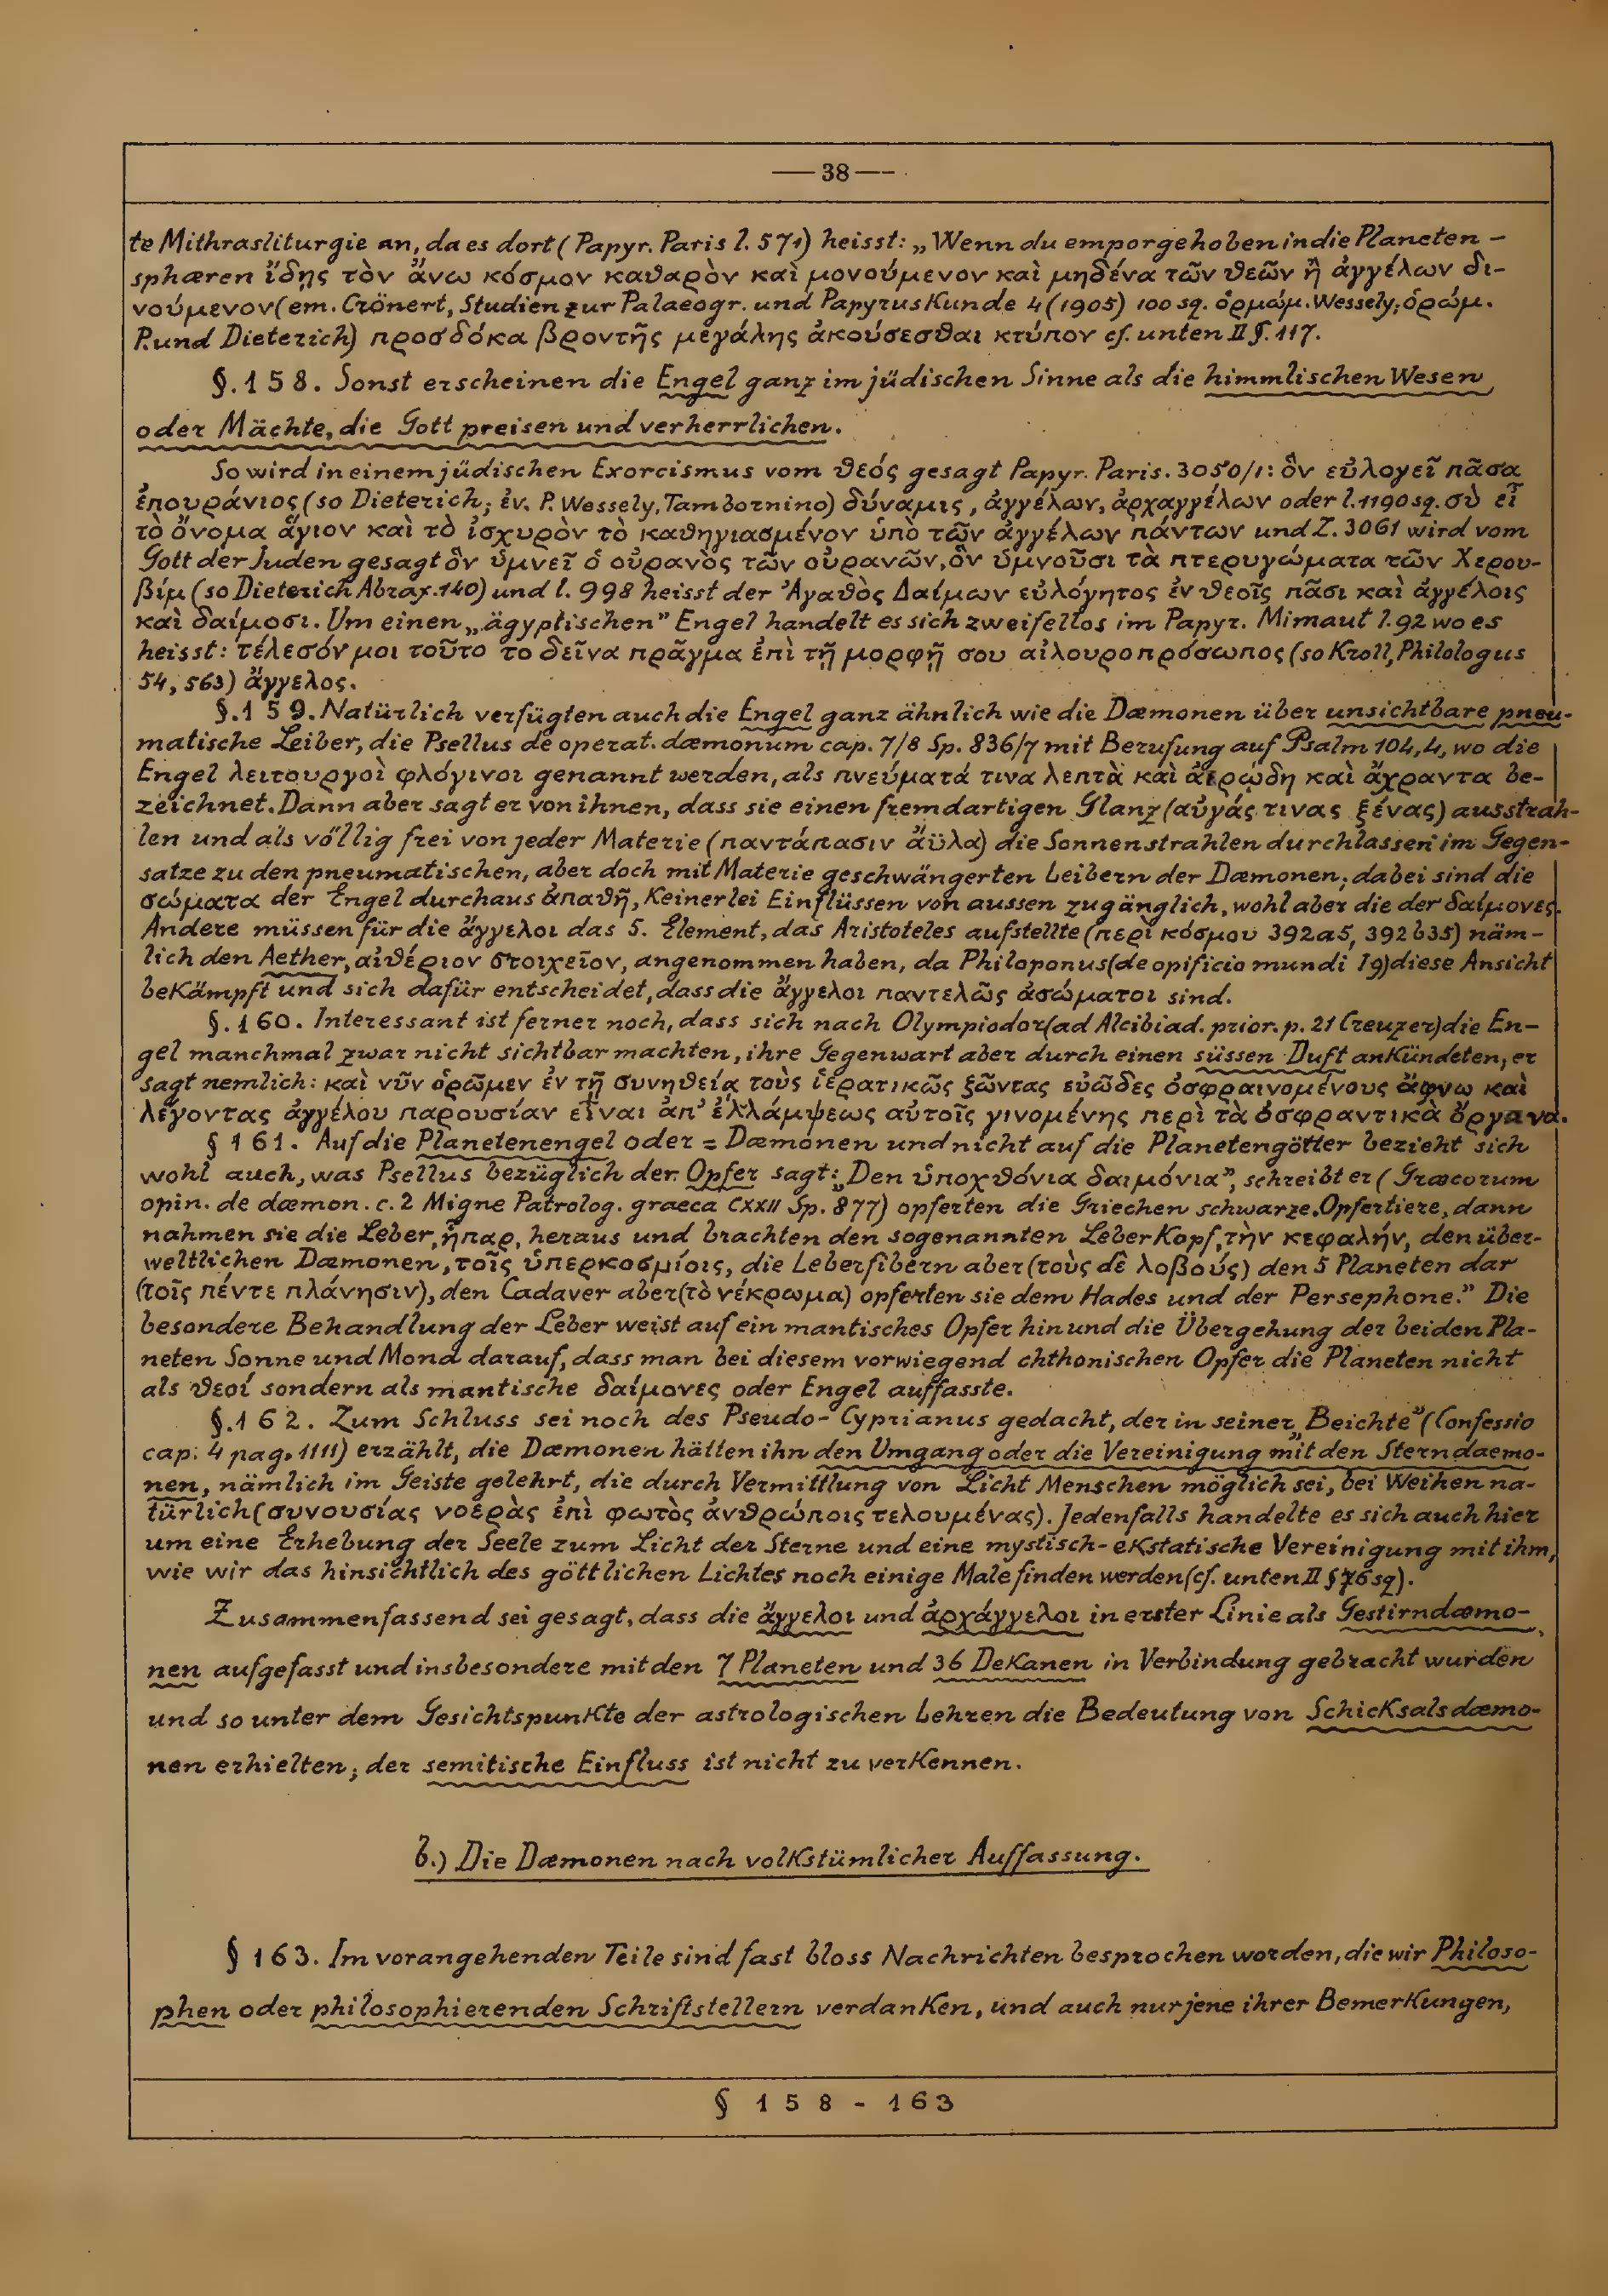 — 38 —
te Mithrasliturgie an, da es dort (Papyr. Paris l. 571) heisst: „Wenn du emporgehoben in die Planeten-
sphæren ἴδῃς τὸν ἄνω κόσμον καθαρὸν καὶ μονούμενον καὶ μηδένα τῶν θεῶν ἢ ἀγγέλων δι-
νούμενον (em. Crönert, Studien zur Palaeogr. und Papyruskunde 4 (1905) 100 sq. ὁρμώμ. Wessely; ὁρώμ.
P. und Dieterich) προσδόκα βροντῆς μεγάλης ἀκούσεσθαι κτύπον cf. unten II §. 117.
§. 158. Sonst erscheinen die Engel ganz im jüdischen Sinne als die himmlischen Wesen
oder Mächte, die Gott preisen und verherrlichen.
So wird in einem jüdischen Exorcismus vom θεός gesagt Papyr. Paris. 3050/1: ὃν εὐλογεῖ πᾶσα
ἐπουράνιος (so Dieterich; ἐν. P. Wessely, Tambornino) δύναμις, ἀγγέλων, ἀρχαγγέλων oder l. 1190 sq. σὺ εἶ
τὸ ὄνομα ἅγιον καὶ τὸ ἰσχυρὸν τὸ καθηγιασμένον ὑπὸ τῶν ἀγγέλων πάντων und Z. 3061 wird vom
Gott der Juden gesagt ὃν ὑμνεῖ ὁ οὐρανὸς τῶν οὐρανῶν, ὃν ὑμνοῦσι τὰ πτερυγώματα τῶν Χερου-
βίμ (so Dieterich Abrax. 140) und l. 998 heisst der Ἀγαθὸς Δαίμων εὐλόγητος ἐν θεοῖς πᾶσι καὶ ἀγγέλοις
καὶ δαίμοσι. Um einen „ägyptischen" Engel handelt es sich zweifellos im Papyr. Mimaut l. 92 wo es
heisst: τέλεσόν μοι τοῦτο το δεῖνα πρᾶγμα ἐπὶ τῇ μορφῇ σου αἰλουροπρόσωπος (so Kroll, Philologus
54, 563) ἄγγελος.
§. 159. Natürlich verfügten auch die Engel ganz ähnlich wie die Dæmonen über unsichtbare pneu-
matische Leiber, die Psellus de operat. dæmonum cap. 7/8 Sp. 836/7 mit Berufung auf Psalm 104,4, wo die
Engel λειτουργοὶ φλόγινοι genannt werden, als πνεύματά τινα λεπτὰ καὶ ἀερώδη καὶ ἄχραντα be-
zeichnet. Dann aber sagt er von ihnen, dass sie einen fremdartigen Glanz (αὐγάς τινας ξένας) ausstrah-
len und als völlig frei von jeder Materie (παντάπασιν ἄϋλα) die Sonnenstrahlen durchlassen im Gegen-
satze zu den pneumatischen, aber doch mit Materie geschwängerten Leibern der Dæmonen; dabei sind die
σώματα der Engel durchaus ἀπαθῆ, keinerlei Einflüssen von aussen zugänglich, wohl aber die der δαίμονες.
Andere müssen für die ἄγγελοι das 5. Element, das Aristoteles aufstellte (περὶ κόσμου 392a5, 392b35) näm-
lich den Aether, αἰθέριον στοιχεῖον, angenommen haben, da Philoponus (de opificio mundi I 9) diese Ansicht
bekämpft und sich dafür entscheidet, dass die ἄγγελοι παντελῶς ἀσώματοι sind.
§. 160. Interessant ist ferner noch, dass sich nach Olympiodor (ad Alcibiad. prior. p. 21 Creuzer) die En-
gel manchmal zwar nicht sichtbar machten, ihre Gegenwart aber durch einen süssen Duft ankündeten; er
sagt nemlich: καὶ νῦν ὁρῶμεν ἐν τῇ συνηθείᾳ τοὺς ἱερατικῶς ζῶντας εὐῶδες ὀσφραινομένους ἄφνω καὶ
λέγοντας ἀγγέλου παρουσίαν εἶναι ἀπ' ἐλλάμψεως αὐτοῖς γινομένης περὶ τὰ ὀσφραντικὰ ὄργανα.
§ 161. Auf die Planetenengel oder = Dæmonen und nicht auf die Planetengötter bezieht sich
wohl auch, was Psellus bezüglich der Opfer sagt: „Den ὑποχθόνια δαιμόνια", schreibt er (Græcorum
opin. de dæmon. c. 2 Migne Patrolog. graeca CXXII Sp. 877) opferten die Griechen schwarze Opfertiere, dann
nahmen sie die Leber, ἧπαρ, heraus und brachten den sogenannten Leberkopf, τὴν κεφαλήν, den über-
weltlichen Dæmonen, τοῖς ὑπερκοσμίοις, die Leberfibern aber (τοὺς δὲ λοβούς) den 5 Planeten dar
(τοῖς πέντε πλάνησιν), den Cadaver aber (τὸ νέκρωμα) opferten sie dem Hades und der Persephone." Die
besondere Behandlung der Leber weist auf ein mantisches Opfer hin und die Übergehung der beiden Pla-
neten Sonne und Mond darauf, dass man bei diesem vorwiegend chthonischen Opfer die Planeten nicht
als θεοί sondern als mantische δαίμονες oder Engel auffasste.
§. 162. Zum Schluss sei noch des Pseudo-Cyprianus gedacht, der in seiner „Beichte" (Confessio
cap. 4 pag. 1111) erzählt, die Dæmonen hätten ihn den Umgang oder die Vereinigung mit den Sterndaemo-
nen, nämlich im Geiste gelehrt, die durch Vermittlung von Licht Menschen möglich sei, bei Weihen na-
türlich (συνουσίας νοερὰς ἐπὶ φωτὸς ἀνθρώποις τελουμένας). Jedenfalls handelte es sich auch hier
um eine Erhebung der Seele zum Licht der Sterne und eine mystisch-ekstatische Vereinigung mit ihm,
wie wir das hinsichtlich des göttlichen Lichtes noch einige Male finden werden (cf. unten II § 76 sq).
Zusammenfassend sei gesagt, dass die ἄγγελοι und ἀρχάγγελοι in erster Linie als Gestirndæmo-
nen aufgefasst und insbesondere mit den 7 Planeten und 36 Dekanen in Verbindung gebracht wurden
und so unter dem Gesichtspunkte der astrologischen Lehren die Bedeutung von Schicksalsdæmo-
nen erhielten; der semitische Einfluss ist nicht zu verkennen.
b.) Die Dæmonen nach volkstümlicher Auffassung.
§ 163. Im vorangehenden Teile sind fast bloss Nachrichten besprochen worden, die wir Philoso-
phen oder philosophierenden Schriftstellern verdanken, und auch nur jene ihrer Bemerkungen,
§ 158 - 163